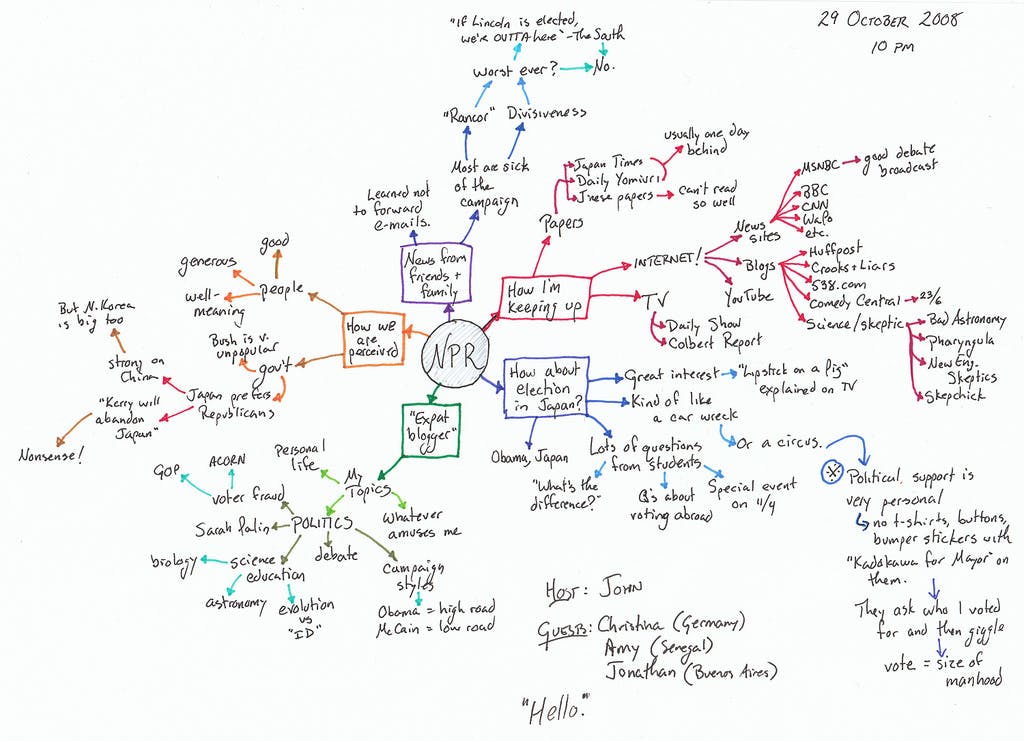 29 October 2008
10 PM
"If Lincoln is elected,
we're OUTTA here" - The South
Worst ever?
No.
"Rancor"
Divisiveness
Most are sick
of the
campaign
Learned not
to forward
e-mails.
News from
friends +
family
usually one day
behind
Japan Times
Daily Yomiuri
J'nese papers
Can't read
so well
Papers
How I'm
keeping up
INTERNET!
News
sites
MSNBC
good debate
broadcast
BBC
CNN
WaPo
etc.
Blogs
Huffpost
Crooks + Liars
538.com
Comedy Central
23/6
Science/skeptic
Bad Astronomy
Pharyngula
New Eng.
Skeptics
Skepchick
YouTube
TV
Daily Show
Colbert Report
good
generous
well-
meaning
people
How we
are
perceived
But N. Korea
is big too
Bush is v.
unpopular
gov't
strong on
China
Japan prefers
Republicans
"Kerry will
abandon
Japan"
Nonsense!
NPR
How about
election
in Japan?
Great interest
"lipstick on a pig"
explained on TV
Kind of like
a car wreck
Or a circus.
Obama, Japan
Lots of questions
from students
"What's the
difference?"
Q's about
voting abroad
Special event
on 11/4
Political support is
very personal
no t-shirts, buttons,
bumper stickers with
"Kadokawa for Mayor" on
them.
They ask who I voted
for and then giggle
vote = size of
manhood
"Expat
blogger"
My
Topics
Personal
life
whatever
amuses me
POLITICS
GOP
ACORN
voter fraud
Sarah Palin
debate
biology
science
education
astronomy
evolution
vs
"ID"
Campaign
styles
Obama = high road
McCain = low road
Host: John
Guests: Christina (Germany)
Amy (Senegal)
Jonathan (Buenos Aires)
"Hello."